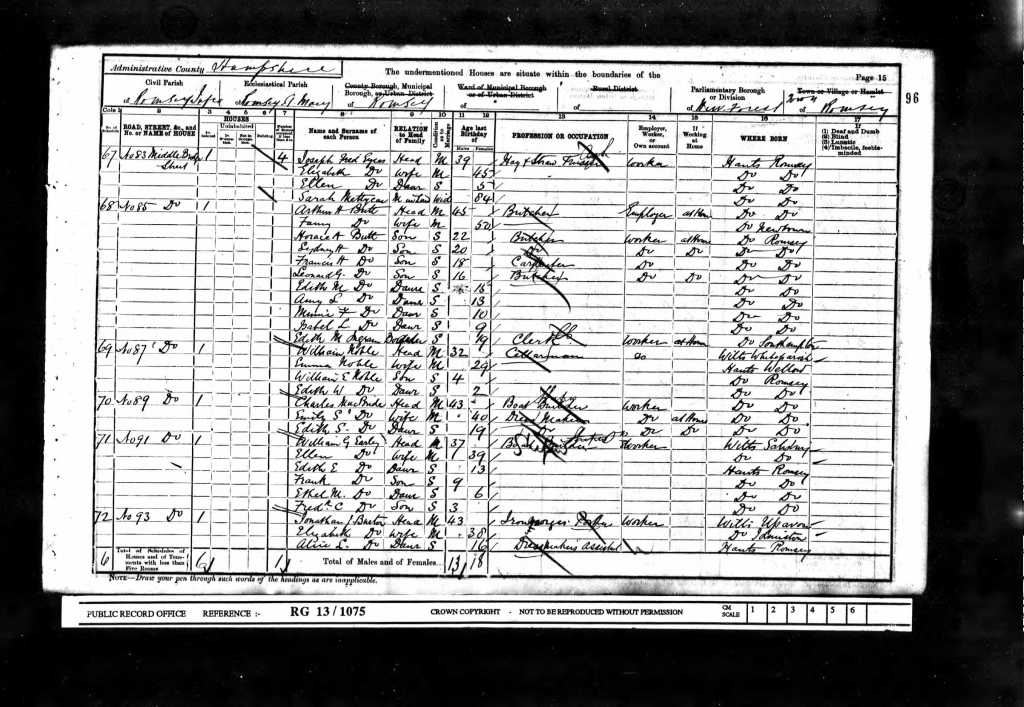 Administrative County Hampshire
The undermentioned Houses are situate within the boundaries of the
Page 15
96
Civil Parish
Ecclesiastical Parish
County Borough, Municipal Borough, or Urban District
Ward of Municipal Borough or of Urban District
Rural District
Parliamentary Borough or Division
Town or Village or Hamlet
of Romsey of Romsey St Mary of Romsey of of of New Forest of Romsey
HOUSES
ROAD, STREET, &c., and No. or NAME of HOUSE
Name and Surname of each Person
RELATION to Head of Family
Age last Birthday of
PROFESSION OR OCCUPATION
Employer, Worker, or Own account
If Working at Home
WHERE BORN
(1) Deaf and Dumb
(2) Blind
(3) Lunatic
(4) Imbecile, feeble-minded
67 No 83 Middle Bridge 1 4 Joseph Fred Head M 39 Hay & Straw Worker Hants Romsey
Elizabeth Do Wife M 45 Do Do
Ellen Do Daur S 5 Do Do
Sarah M in Law Wid 84 Do Do
68 No 85 Do 1 Arthur H Butt Head M 45 Butcher Employer at Home Do Do
Fanny Do Wife M 50 Do
Horace A Butt Son S 22 Butcher Worker at Home Do Romsey
Sydney H Do Son S 20 Do Do Do Do Do
Francis H Do Son S 18 Carpenter Do Do Do
Leonard G. Do Son S 16 Butcher Do Do Do Do
Edith M Do Daur S 15 Do Do
Amy L Do Daur S 13 Do Do
Minnie Do Daur S 10 Do Do
Isabel L Do Daur S 9 Do Do
Edith M Ingram Boarder S 19 Clerk Worker at Home Do Southampton
69 No 87 Do 1 William Noble Head M 32 Cellarman do Wilts Whiteparish
Emma Noble Wife M 29 Hants Wellow
William E Noble Son S 4 Do Romsey
Edith W Do Daur S 2 Do Do
70 No 89 Do 1 Charles Head M 43 Boat Builder Worker Do Do
Emily S Do Wife M 40 Dress Maker Do at Home Do Do
Edith S. Do Daur S 19 Do Do Do Do Do
71 No 91 Do 1 William G Earley Head M 37 Worker Wilts Salisbury
Ellen Do Wife M 39 Do Do
Edith E Do Daur S 13 Hants Romsey
Frank Do Son S 9 Do Do
Ethel M. Do Daur S 6 Do Do
Fredk C Do Son S 3 Do Do
72 No 93 Do 1 Jonathan J Head M 43 Ironmonger Porter Worker Wilts Upavon
Elizabeth Do Wife M 38 Do Idmiston
Alice L. Do Daur S 16 Dressmakers Assist Hants Romsey
6 Total of Schedules of Houses and of Tenements with less than Five Rooms 6 1 Total of Males and of Females... 13 18
NOTE—Draw your pen through such words of the headings as are inapplicable.
PUBLIC RECORD OFFICE REFERENCE :- RG 13/1075 CROWN COPYRIGHT - NOT TO BE REPRODUCED WITHOUT PERMISSION CM SCALE 1 2 3 4 5 6